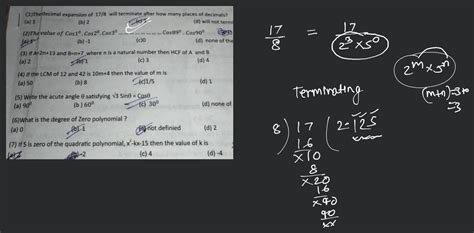 (1)The decimal expansion of 17/8 will terminate after how many places of decimals?
(a) 1 (b) 2 (c) 3 (d) will not term
(2)The value of Cos1⁰. Cos2⁰. Cos3⁰ ............ Cos89⁰. Cos90⁰
(b) -1 (c)0 (d) none of the
(3) If A=2n+13 and B=n+7, where n is a natural number then HCF of A and B
(a) 2 (b)1 (c) 3 (d) 4
(4) If the LCM of 12 and 42 is 10m+4 then the value of m is
(a) 50 (b) 8 (c)1/5 (d) 1
(5) Write the acute angle θ satisfying √3 Sinθ = Cosθ
(a) 90⁰ (b) 60⁰ (c) 30⁰ (d) none of
(6)What is the degree of Zero polynomial ?
(a) 0 (b)-1 not definied (d) 2
(7) If 5 is zero of the quadratic polynomial, x²-kx-15 then the value of k is
(a) 2 (b)-2 (c) 4 (d) -4
17/8 = 17/2³×5⁰
2ᵐ×5ⁿ
Terminating
8) 17 (2.125
16
×10
8
×20
16
×40